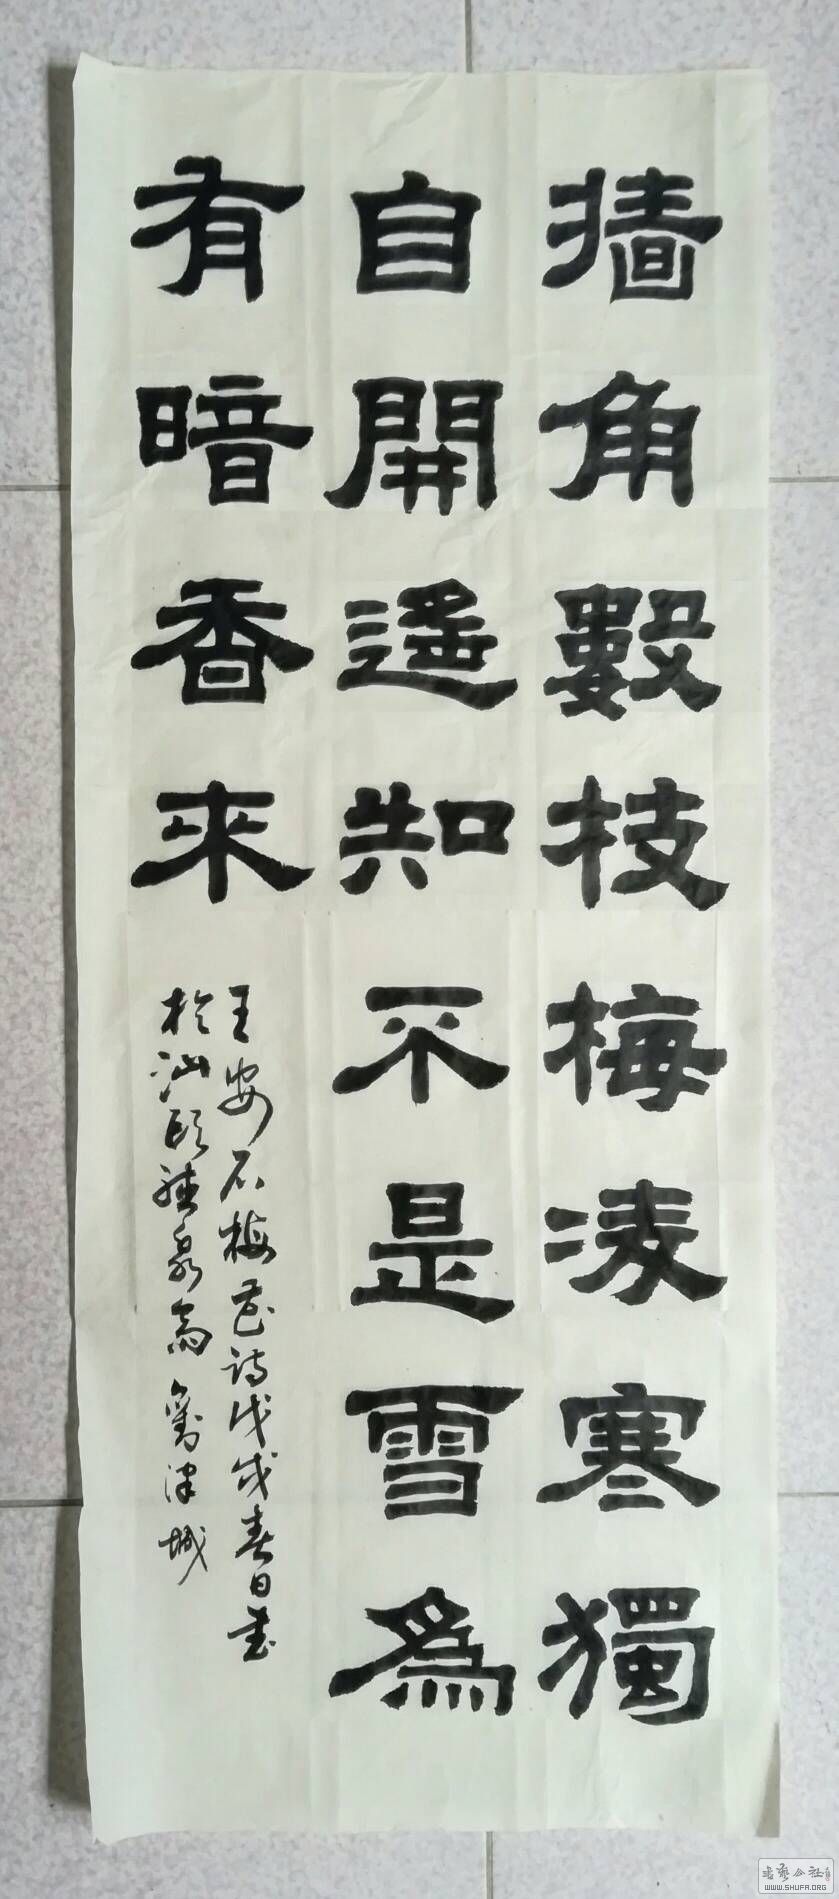 墙角數枝梅凌寒獨
自開遥知不是雪為
有暗香來
王安石梅花詩戊戌春日書
於汕頭聽泉斋 劉澤城
WWW.SHUFA.ORG